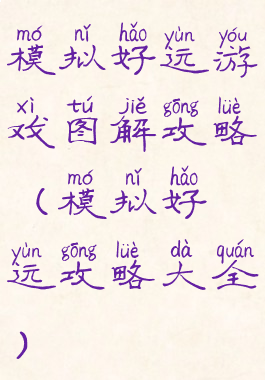 mó nǐ hǎo yùn yóu
模拟好运游
xì tú jiě gōng lüè
戏图解攻略
mó nǐ hǎo
（模拟好
yùn gōng lüè dà quán
运攻略大全
）